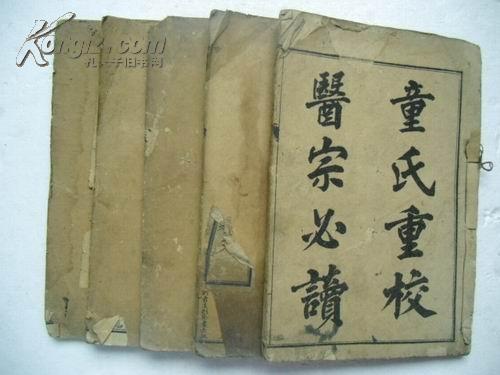 Kongfz.com
孔夫子旧书网
童氏重校
醫宗必讀